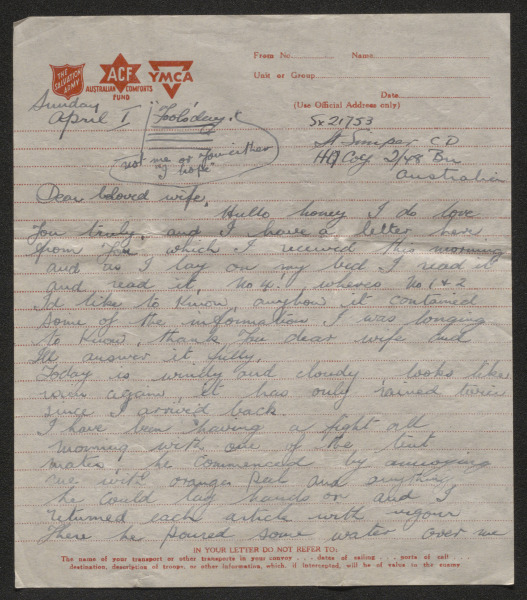 From No. Name
Unit or Group
Date
(Use Official Address only)
THE SALVATION ARMY
ACF
AUSTRALIAN COMFORTS FUND
YMCA
Sunday
April 1
"Foolsday"
not me or you either
I hope"
Sx21753
Simper C D
HQ Coy 2/48 Bn
Australia
Dear beloved wife,
Hullo honey I do love
You truly, and I have a letter here
from You, which I received this morning
and as I lay on my bed I read it
and read it, No 4. wheres No 1 & 2
I'd like to know, anyhow it contained
some of the information I was longing
to know, thank You dear wife and
I'll answer it fully.
Today is windy and cloudy, looks like
rain again, it has only rained twice
since I arrived back.
I have been having a fight all
morning with one of the tent
mates, he commenced by annoying
me with oranges Peel and anything
he could lay hands on and I
returned each article with vigour
There he poured some water over me
IN YOUR LETTER DO NOT REFER TO:
The name of your transport or other transports in your convoy . . . dates of sailing . . . ports of call
destination, description of troops, or other information, which, if intercepted, will be of value to the enemy